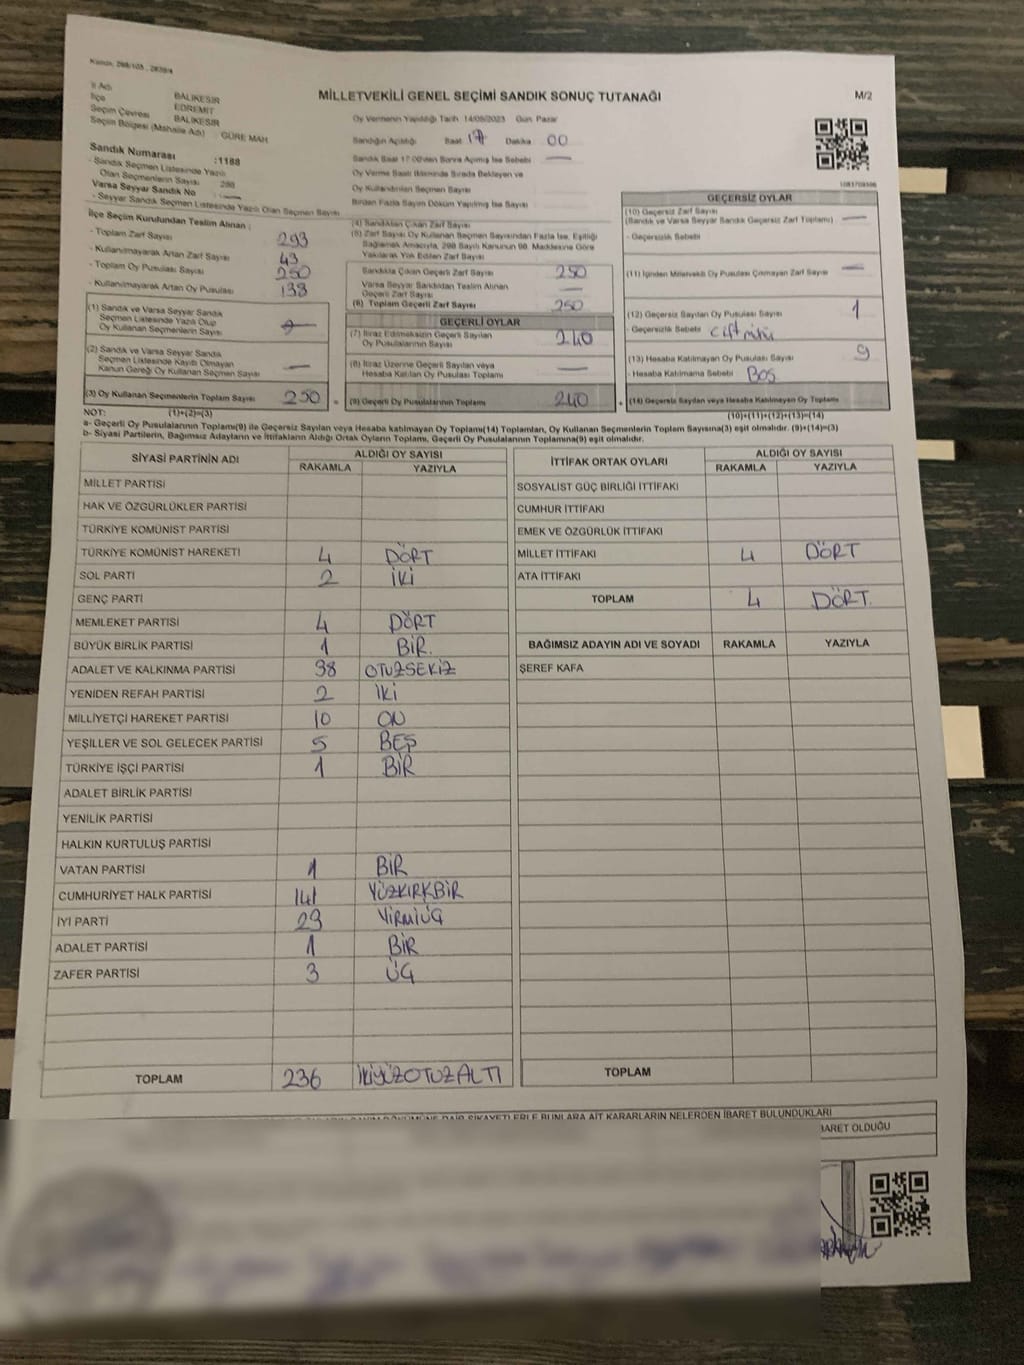 Kanun, 298/105 , 2839/4
MİLLETVEKİLİ GENEL SEÇİMİ SANDIK SONUÇ TUTANAĞI
M/2
İl Adı BALIKESİR
İlçe EDREMİT
Seçim Çevresi BALIKESİR
Seçim Bölgesi (Mahalle Adı) GÜRE MAH
Sandık Numarası :1188
- Sandık Seçmen Listesinde Yazılı
Olan Seçmenlerin Sayısı
Varsa Seyyar Sandık No
- Seyyar Sandık Seçmen Listesinde Yazılı Olan Seçmen Sayısı
Oy Vermenin Yapıldığı Tarih 14/05/2023 Gün Pazar
Sandığın Açıldığı Saat 17 Dakika 00
Sandık Saat 17:00'den Sonra Açılmış İse Sebebi —
Oy Verme Saati Bitiminde Sırada Bekleyen ve
Oy Kullandırılan Seçmen Sayısı
Birden Fazla Sayım Döküm Yapılmış İse Sayısı
İlçe Seçim Kurulundan Teslim Alınan :
- Toplam Zarf Sayısı 293
- Kullanılmayarak Artan Zarf Sayısı 43
- Toplam Oy Pusulası Sayısı 250
- Kullanılmayarak Artan Oy Pusulası 138
(1) Sandık ve Varsa Seyyar Sandık
Seçmen Listesinde Yazılı Olup
Oy Kullanan Seçmenlerin Sayısı
(2) Sandık ve Varsa Seyyar Sandık
Seçmen Listesinde Kayıtlı Olmayan
Kanun Gereği Oy Kullanan Seçmen Sayısı —
(3) Oy Kullanan Seçmenlerin Toplam Sayısı 250 =
(4) Sandıktan Çıkan Zarf Sayısı
(5) Zarf Sayısı Oy Kullanan Seçmen Sayısından Fazla İse, Eşitliği
Sağlamak Amacıyla, 298 Sayılı Kanunun 98. Maddesine Göre
Yakılarak Yok Edilen Zarf Sayısı
Sandıkta Çıkan Geçerli Zarf Sayısı 250
Varsa Seyyar Sandıktan Teslim Alınan
Geçerli Zarf Sayısı —
(6) Toplam Geçerli Zarf Sayısı 250
GEÇERLİ OYLAR
(7) İtiraz Edilmeksizin Geçerli Sayılan
Oy Pusulalarının Sayısı 240
(8) İtiraz Üzerine Geçerli Sayılan veya
Hesaba Katılan Oy Pusulası Toplamı —
(9) Geçerli Oy Pusulalarının Toplamı 240 +
GEÇERSİZ OYLAR
(10) Geçersiz Zarf Sayısı
(Sandık ve Varsa Seyyar Sandık Geçersiz Zarf Toplamı) —
- Geçersizlik Sebebi
(11) İçinden Milletvekili Oy Pusulası Çıkmayan Zarf Sayısı —
(12) Geçersiz Sayılan Oy Pusulası Sayısı 1
Geçersizlik Sebebi
(13) Hesaba Katılmayan Oy Pusulası Sayısı 9
- Hesaba Katılmama Sebebi BOŞ
(14) Geçersiz Sayılan veya Hesaba Katılmayan Oy Toplamı
NOT: (1)+(2)=(3) (10)+(11)+(12)+(13)=(14)
a- Geçerli Oy Pusulalarının Toplamı(9) ile Geçersiz Sayılan veya Hesaba katılmayan Oy Toplamı(14) Toplamları, Oy Kullanan Seçmenlerin Toplam Sayısına(3) eşit olmalıdır. (9)+(14)=(3)
b- Siyasi Partilerin, Bağımsız Adayların ve İttifakların Aldığı Ortak Oyların Toplamı, Geçerli Oy Pusulalarının Toplamına(9) eşit olmalıdır.
SİYASİ PARTİNİN ADI ALDIĞI OY SAYISI
RAKAMLA YAZIYLA
MİLLET PARTİSİ
HAK VE ÖZGÜRLÜKLER PARTİSİ
TÜRKİYE KOMÜNİST PARTİSİ
TÜRKİYE KOMÜNİST HAREKETİ 4 DÖRT
SOL PARTİ 2 İKİ
GENÇ PARTİ
MEMLEKET PARTİSİ 4 DÖRT
BÜYÜK BİRLİK PARTİSİ 1 BİR.
ADALET VE KALKINMA PARTİSİ 38 OTUZSEKİZ
YENİDEN REFAH PARTİSİ 2 İKİ
MİLLİYETÇİ HAREKET PARTİSİ 10 ON
YEŞİLLER VE SOL GELECEK PARTİSİ 5 BEŞ
TÜRKİYE İŞÇİ PARTİSİ 1 BİR
ADALET BİRLİK PARTİSİ
YENİLİK PARTİSİ
HALKIN KURTULUŞ PARTİSİ
VATAN PARTİSİ 1 BİR
CUMHURİYET HALK PARTİSİ 141 YÜZKIRKBİR
İYİ PARTİ 23 YİRMİÜÇ
ADALET PARTİSİ 1 BİR
ZAFER PARTİSİ 3 ÜÇ
TOPLAM 236 İKİYÜZOTUZALTI
İTTİFAK ORTAK OYLARI ALDIĞI OY SAYISI
RAKAMLA YAZIYLA
SOSYALİST GÜÇ BİRLİĞİ İTTİFAKI
CUMHUR İTTİFAKI
EMEK VE ÖZGÜRLÜK İTTİFAKI
MİLLET İTTİFAKI 4 DÖRT
ATA İTTİFAKI
TOPLAM 4 DÖRT.
BAĞIMSIZ ADAYIN ADI VE SOYADI RAKAMLA YAZIYLA
ŞEREF KAFA
TOPLAM
DÖKÜMÜNE DAİR ŞİKAYETLERLE BUNLARA AİT KARARLARIN NELERDEN İBARET BULUNDUKLARI
İBARET OLDUĞU